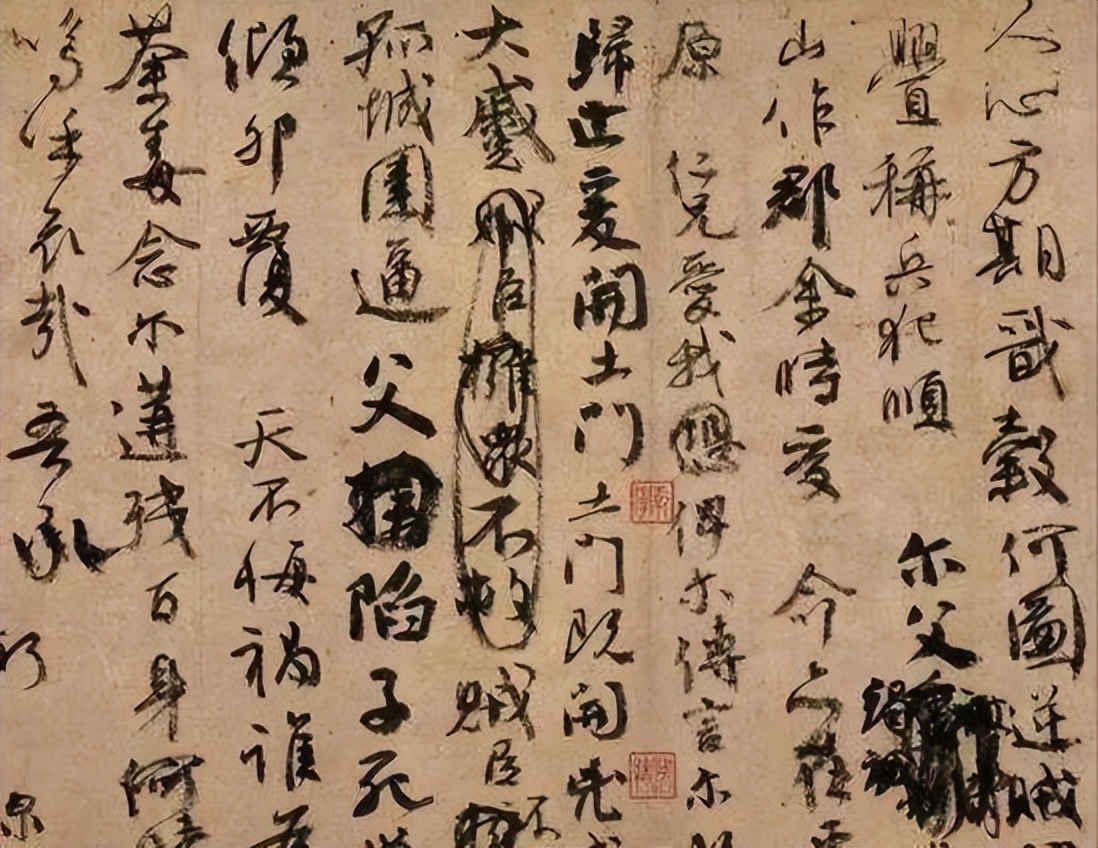 人心方期戩穀何圖逆賊
釁稱兵犯順尔父竭誠
山作郡余時受命亦在平
原仁兄愛我俾尔傳言尔既
歸止爰開土門土門既開凶威
大蹙賊臣擁衆不救賊臣不
孤城圍逼父陷子死巢
傾卵覆天不悔禍誰為
荼毒念尔遘殘百身何贖
嗚呼哀哉吾承